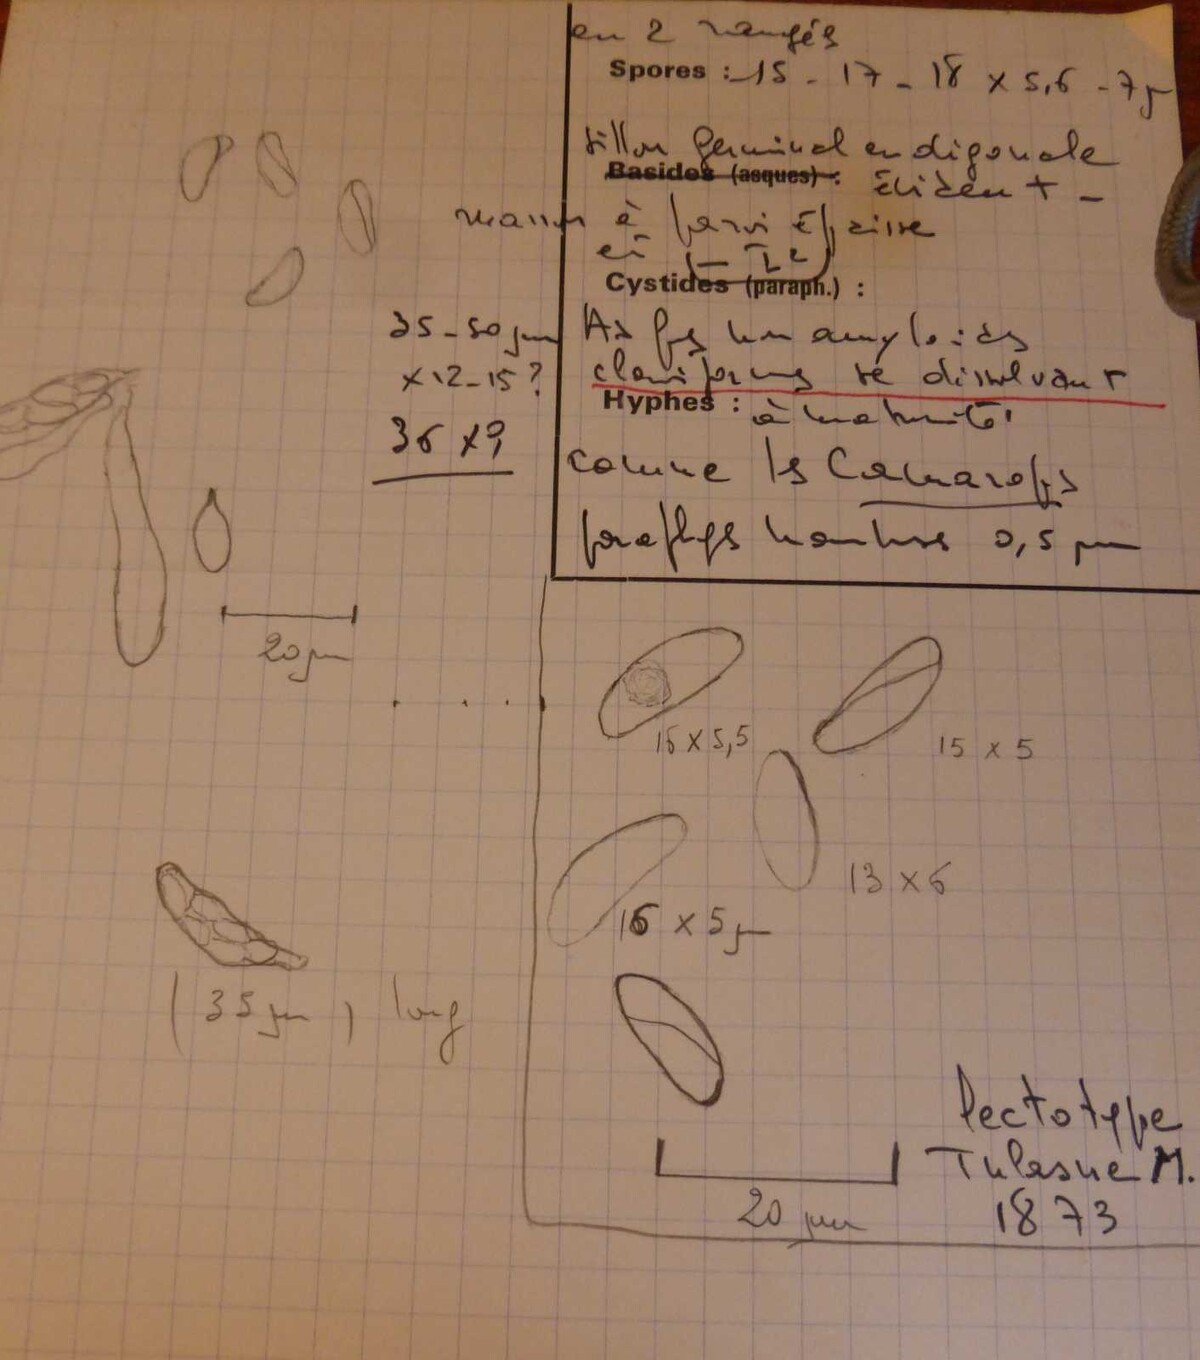 en 2 rangés
Spores : 15 - 17 - 18 x 5,6 - 7 µ
sillon germinal en digonale
Basides (asques) : évident -
marron à paroi épaisse
Cystides (paraph.) :
35-50 µm
x 12-15 ?
36 x 9
non amyloides
claviformes se dissolvant
Hyphes :
à maturité
comme les Camarops
paraphyses nombreuses 0,5 µm
20 µm
15 x 5,5
15 x 5
13 x 6
16 x 5 µ
(35 µm) long
20 µm
lectotype
Tulasne M.
1873